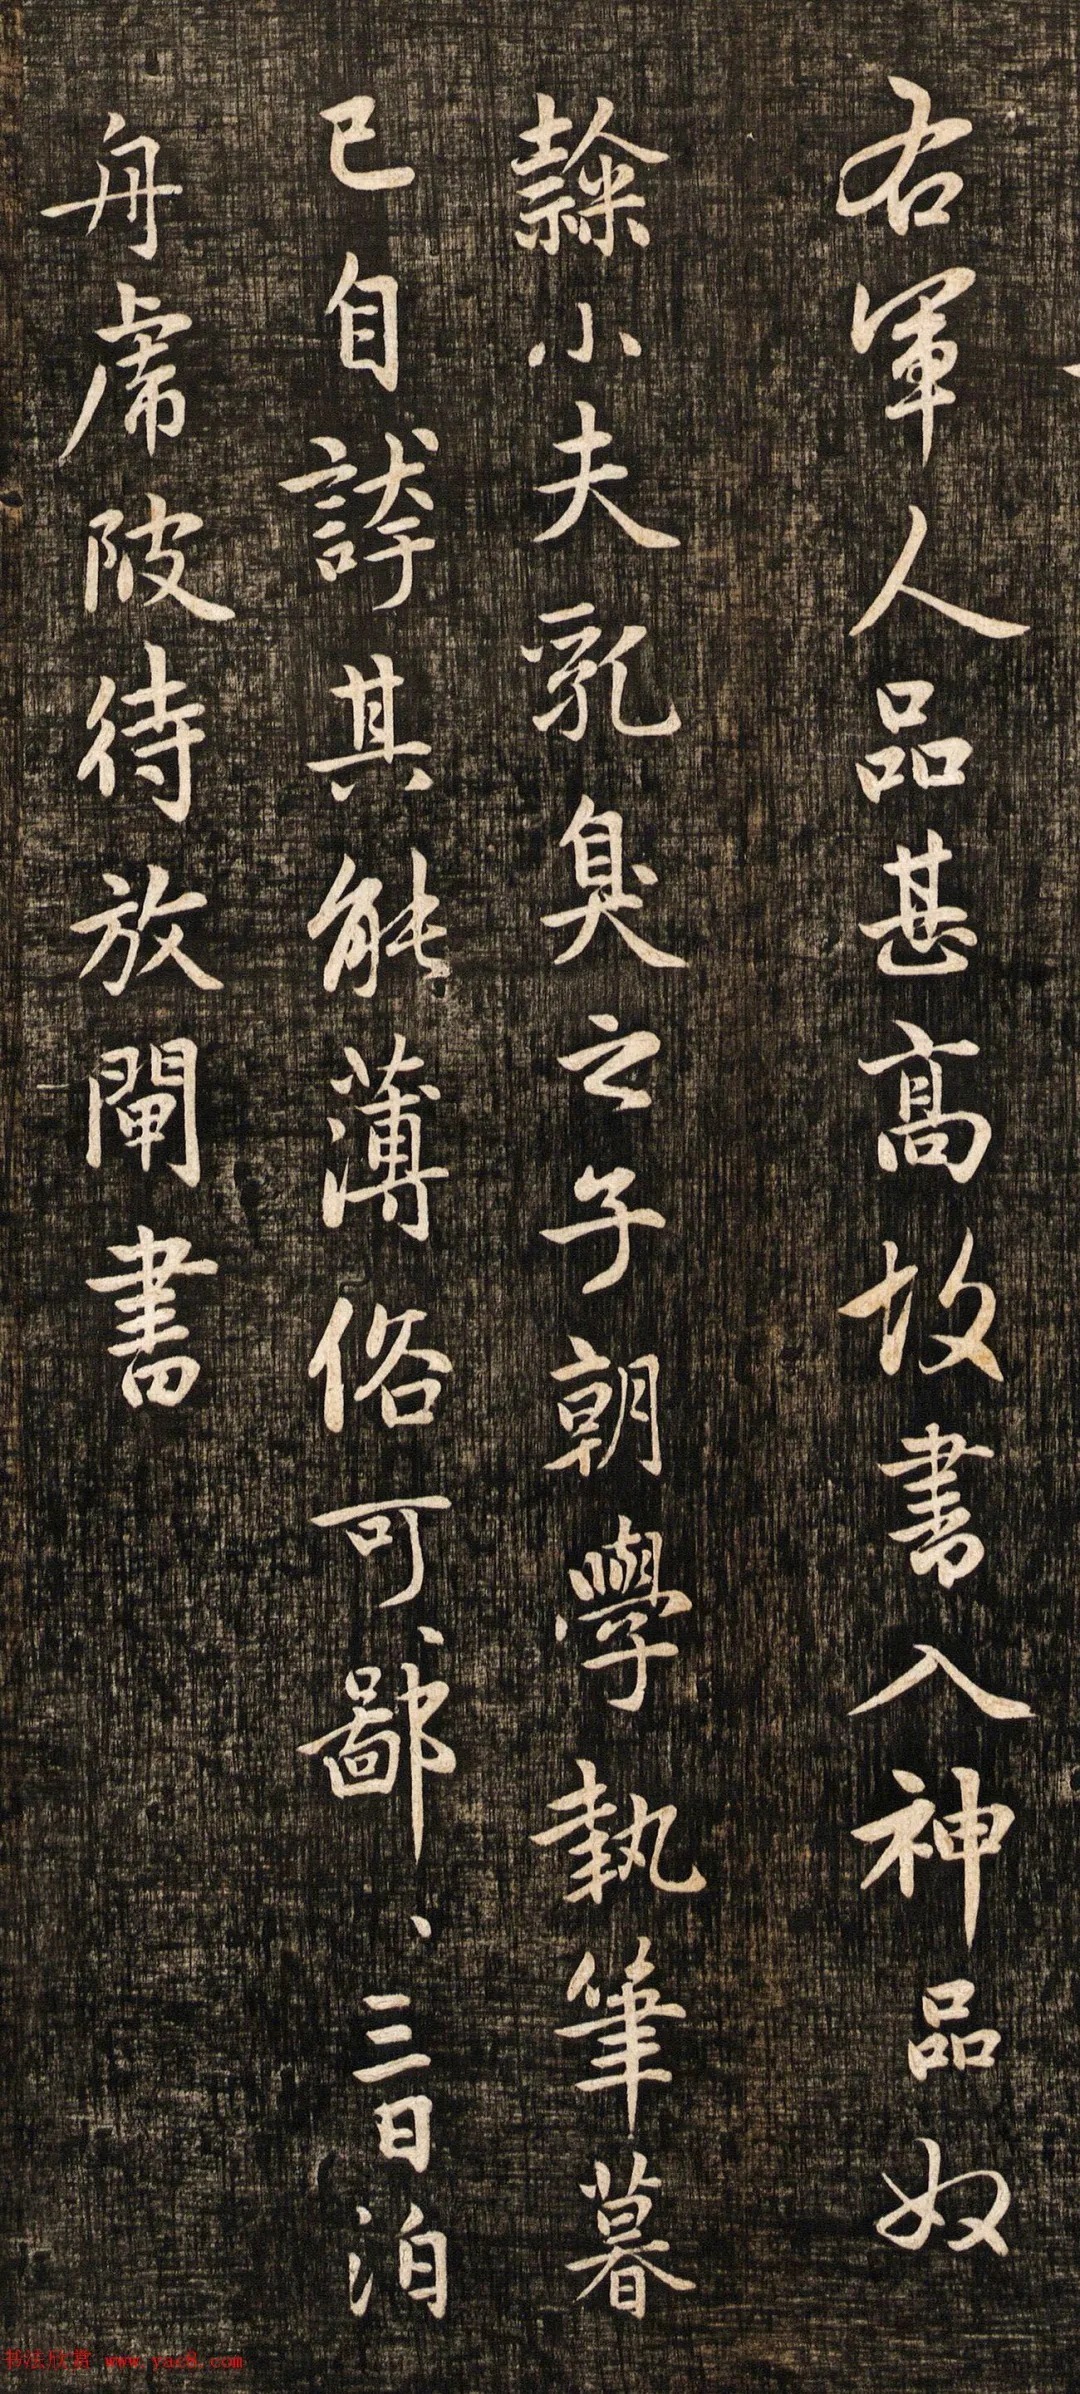 右軍人品甚高故書入神品奴
隸小夫乳臭之子朝學執筆暮
已自誇其能薄俗可鄙可鄙三日泊
舟虎陂待放閘書
书法欣赏 www.yac8.com